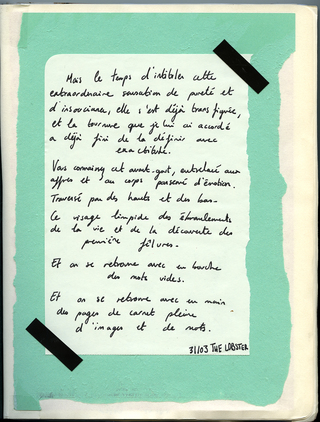 Mais le temps d'intibler cette
extraordinaire sensation de pureté et
d'insouciance, elle s'est déjà transfigurée,
et la tournure que je lui ai accordé
a déjà fini de la définir avec
exactitude.
Vous connaissez cet avant-goût, entrelacé aux
affres et au corps parsemé d'émotion.
Traversé par des hauts et des bas.
Ce visage limpide des éboulements
de la vie et de la découverte des
première fêlures.
Et on se retrouve avec en bouche
des mots vides.
Et on se retrouve avec en main
des pages de carnet pleine
d'images et de mots.
31/03 THE LOBSTER